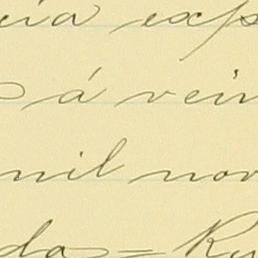 cia exp
s á vein
mil nov
dos = Ru